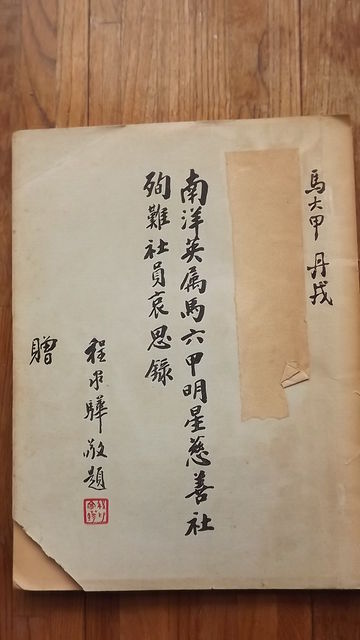 馬六甲 丹戎
南洋英属馬六甲明星慈善社
殉難社員哀思錄
程驊敬題
贈